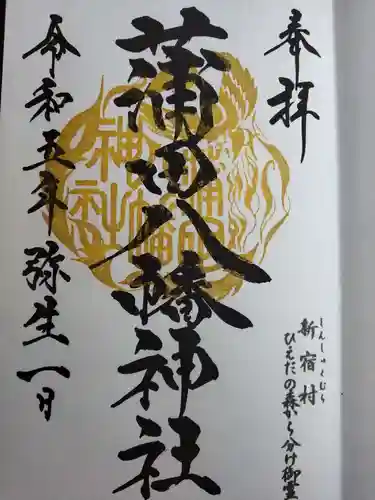 奉拝
蒲田八幡神社
令和五年弥生一日
新宿村
しんしゅくむら
ひえだの森から分け御霊